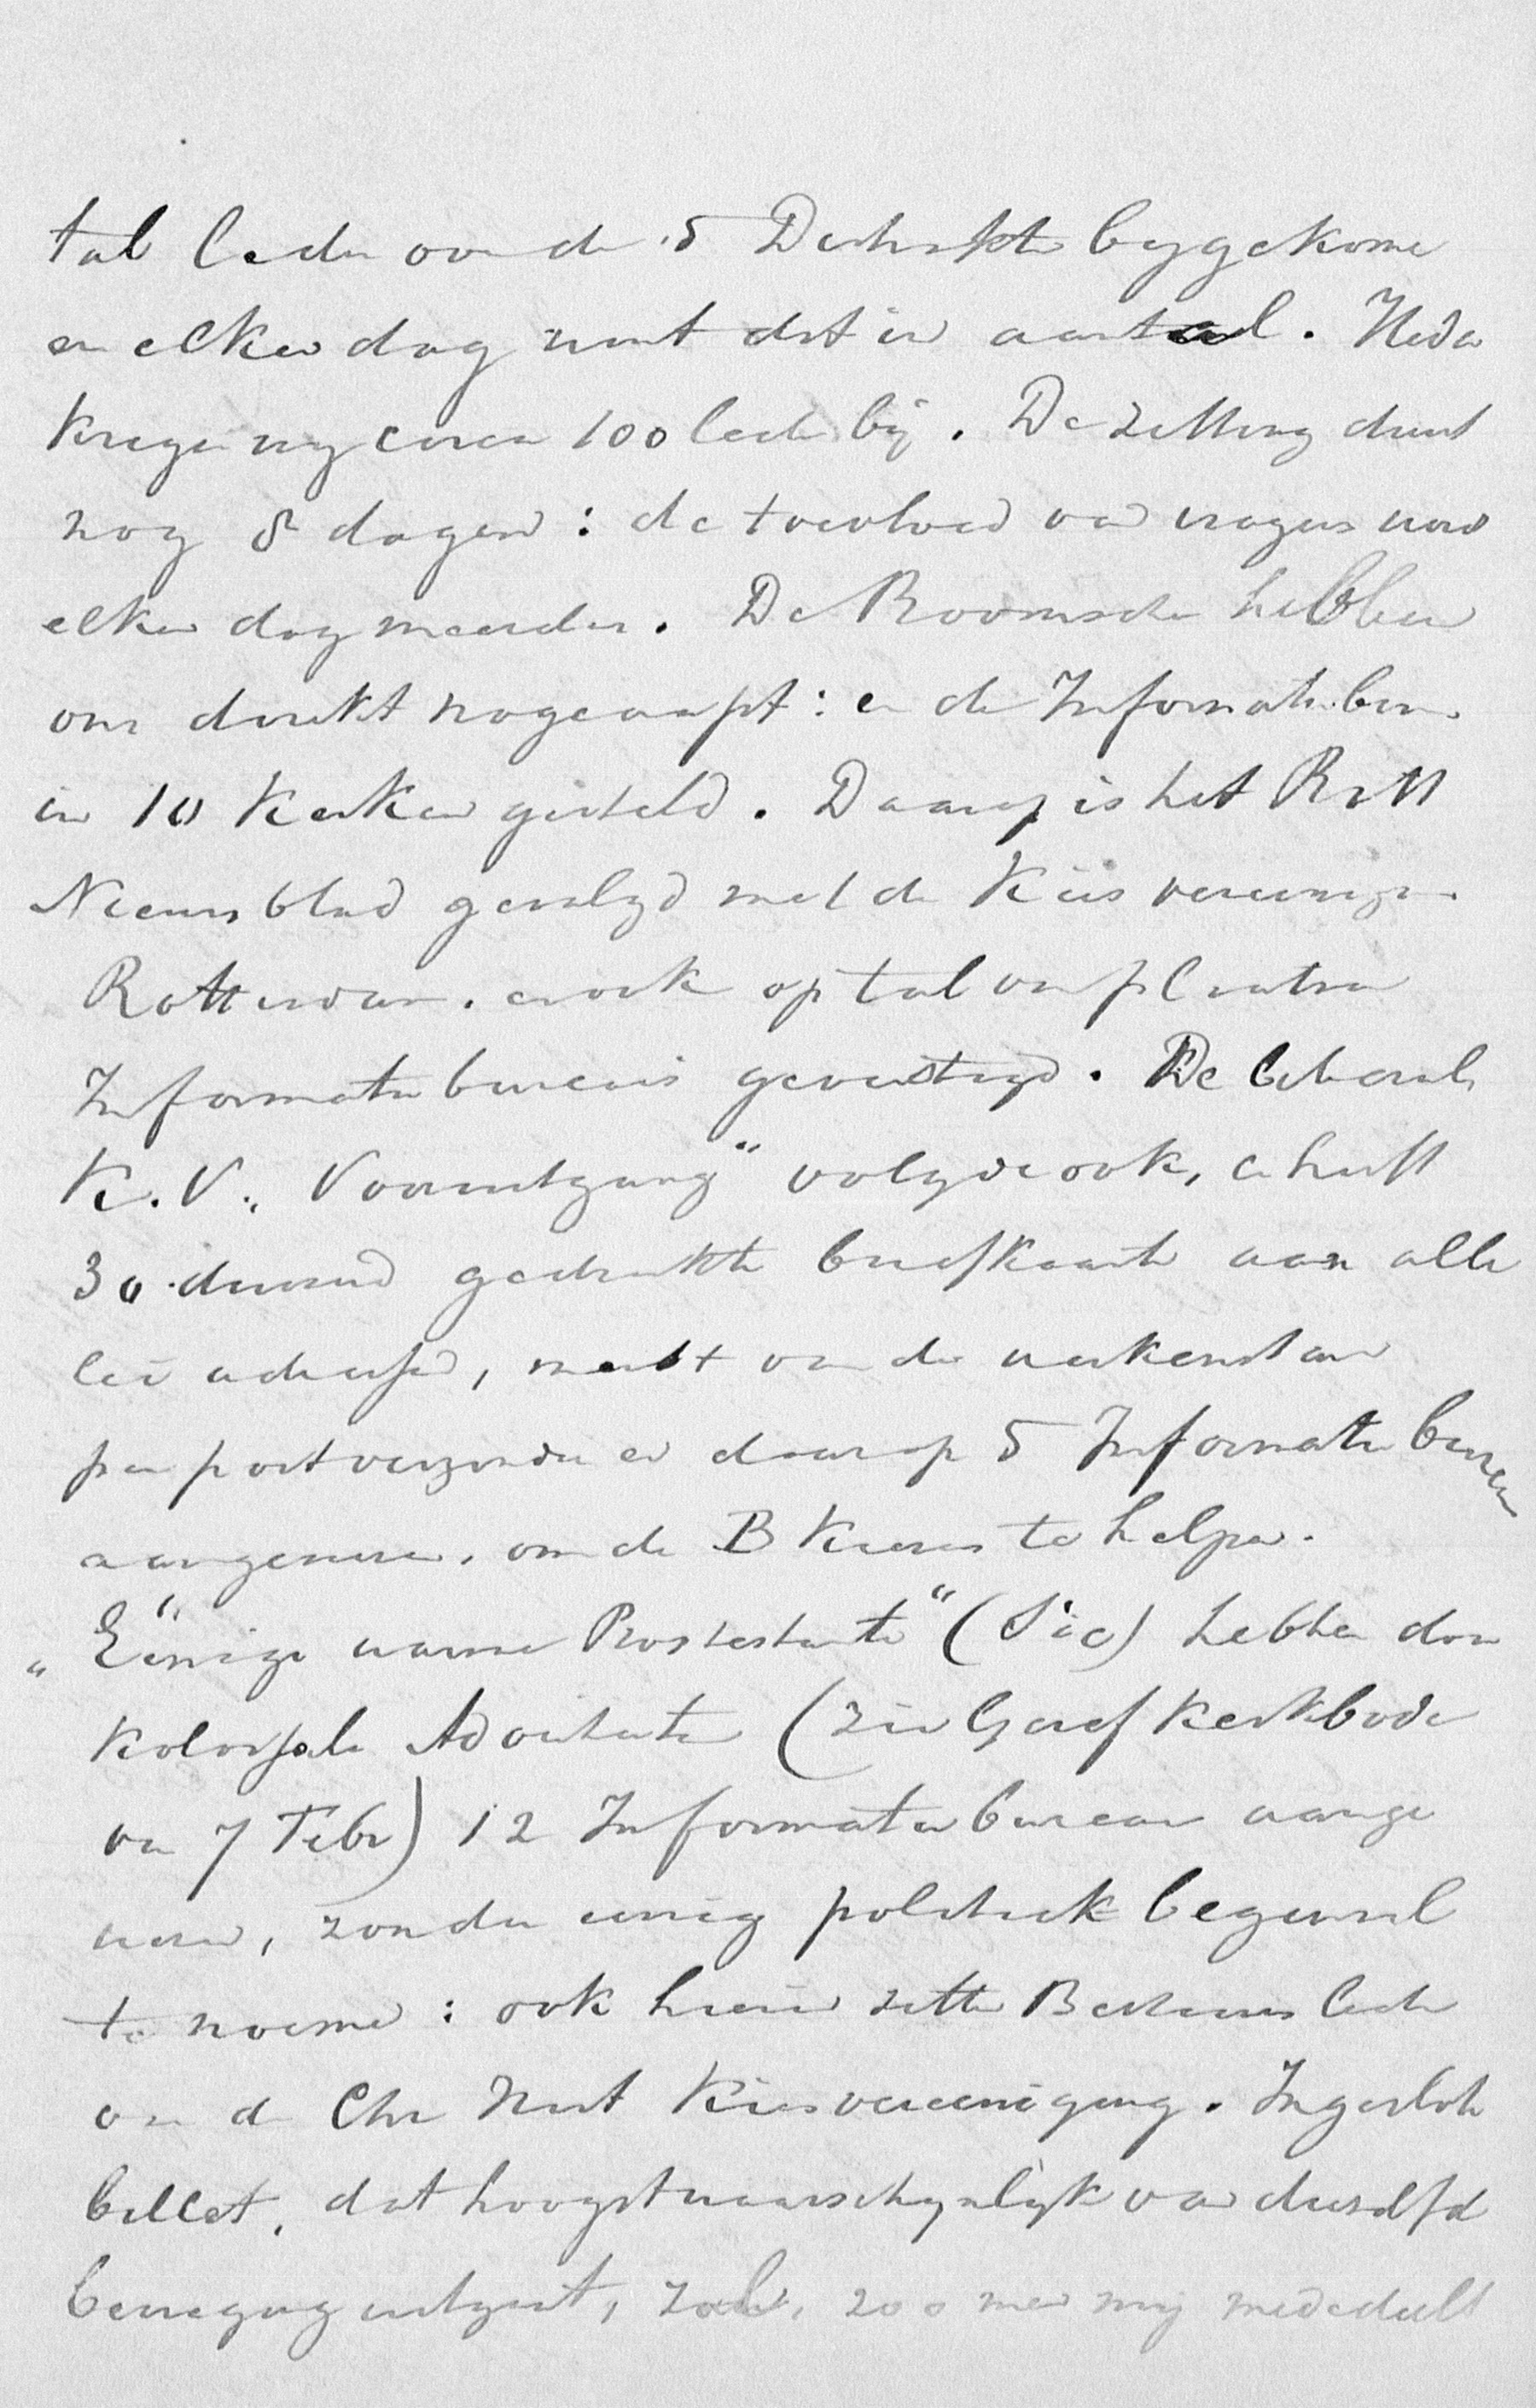 tal leden van de 5 Districkten bygekomen
en elken dag wint dit in aantal. Heden
kregen wy circa 100 leden bij. De zitting duurt
nog 8 dagen : de toevloed van vragers word
elken dag meerder. De Roomschen hebben
ons direkt nageaapt : en de Informatiebur.
in 10 Kerken gesteld. Daarop is het Rott
Nieuwsblad gevolgd met de Kiesvereenigin
Rotterdam. en ook op tal van plaatsen
Informatie bureaus gevestigd. De liberale
K. V. „Vooruitgang" volgde ook, en heeft
30 duizend gedrukte briefkaarten aan alle
lei adressen, meest van de werkenstand
per post verzonden en daarop 5 Informatie bureau
aangewezen, om de B Kiezers te helpen.
„Eenige warme Prostestanten" (Sic) hebben door
kolossale Advertentie (zie Geref Kerkbode
van 7 Febr) 12 Informatie bureau aange
wezen, zonder eenig politiek beginsel
te noemen : ook hierin zitten Bestuurs leden
van de Chr Hist Kiesvereeniging. Ingesloten
billet, dat hoogstwaarschynlyk van diezelfde
beweging uitgaat, zal, zoo men mij mededeelt